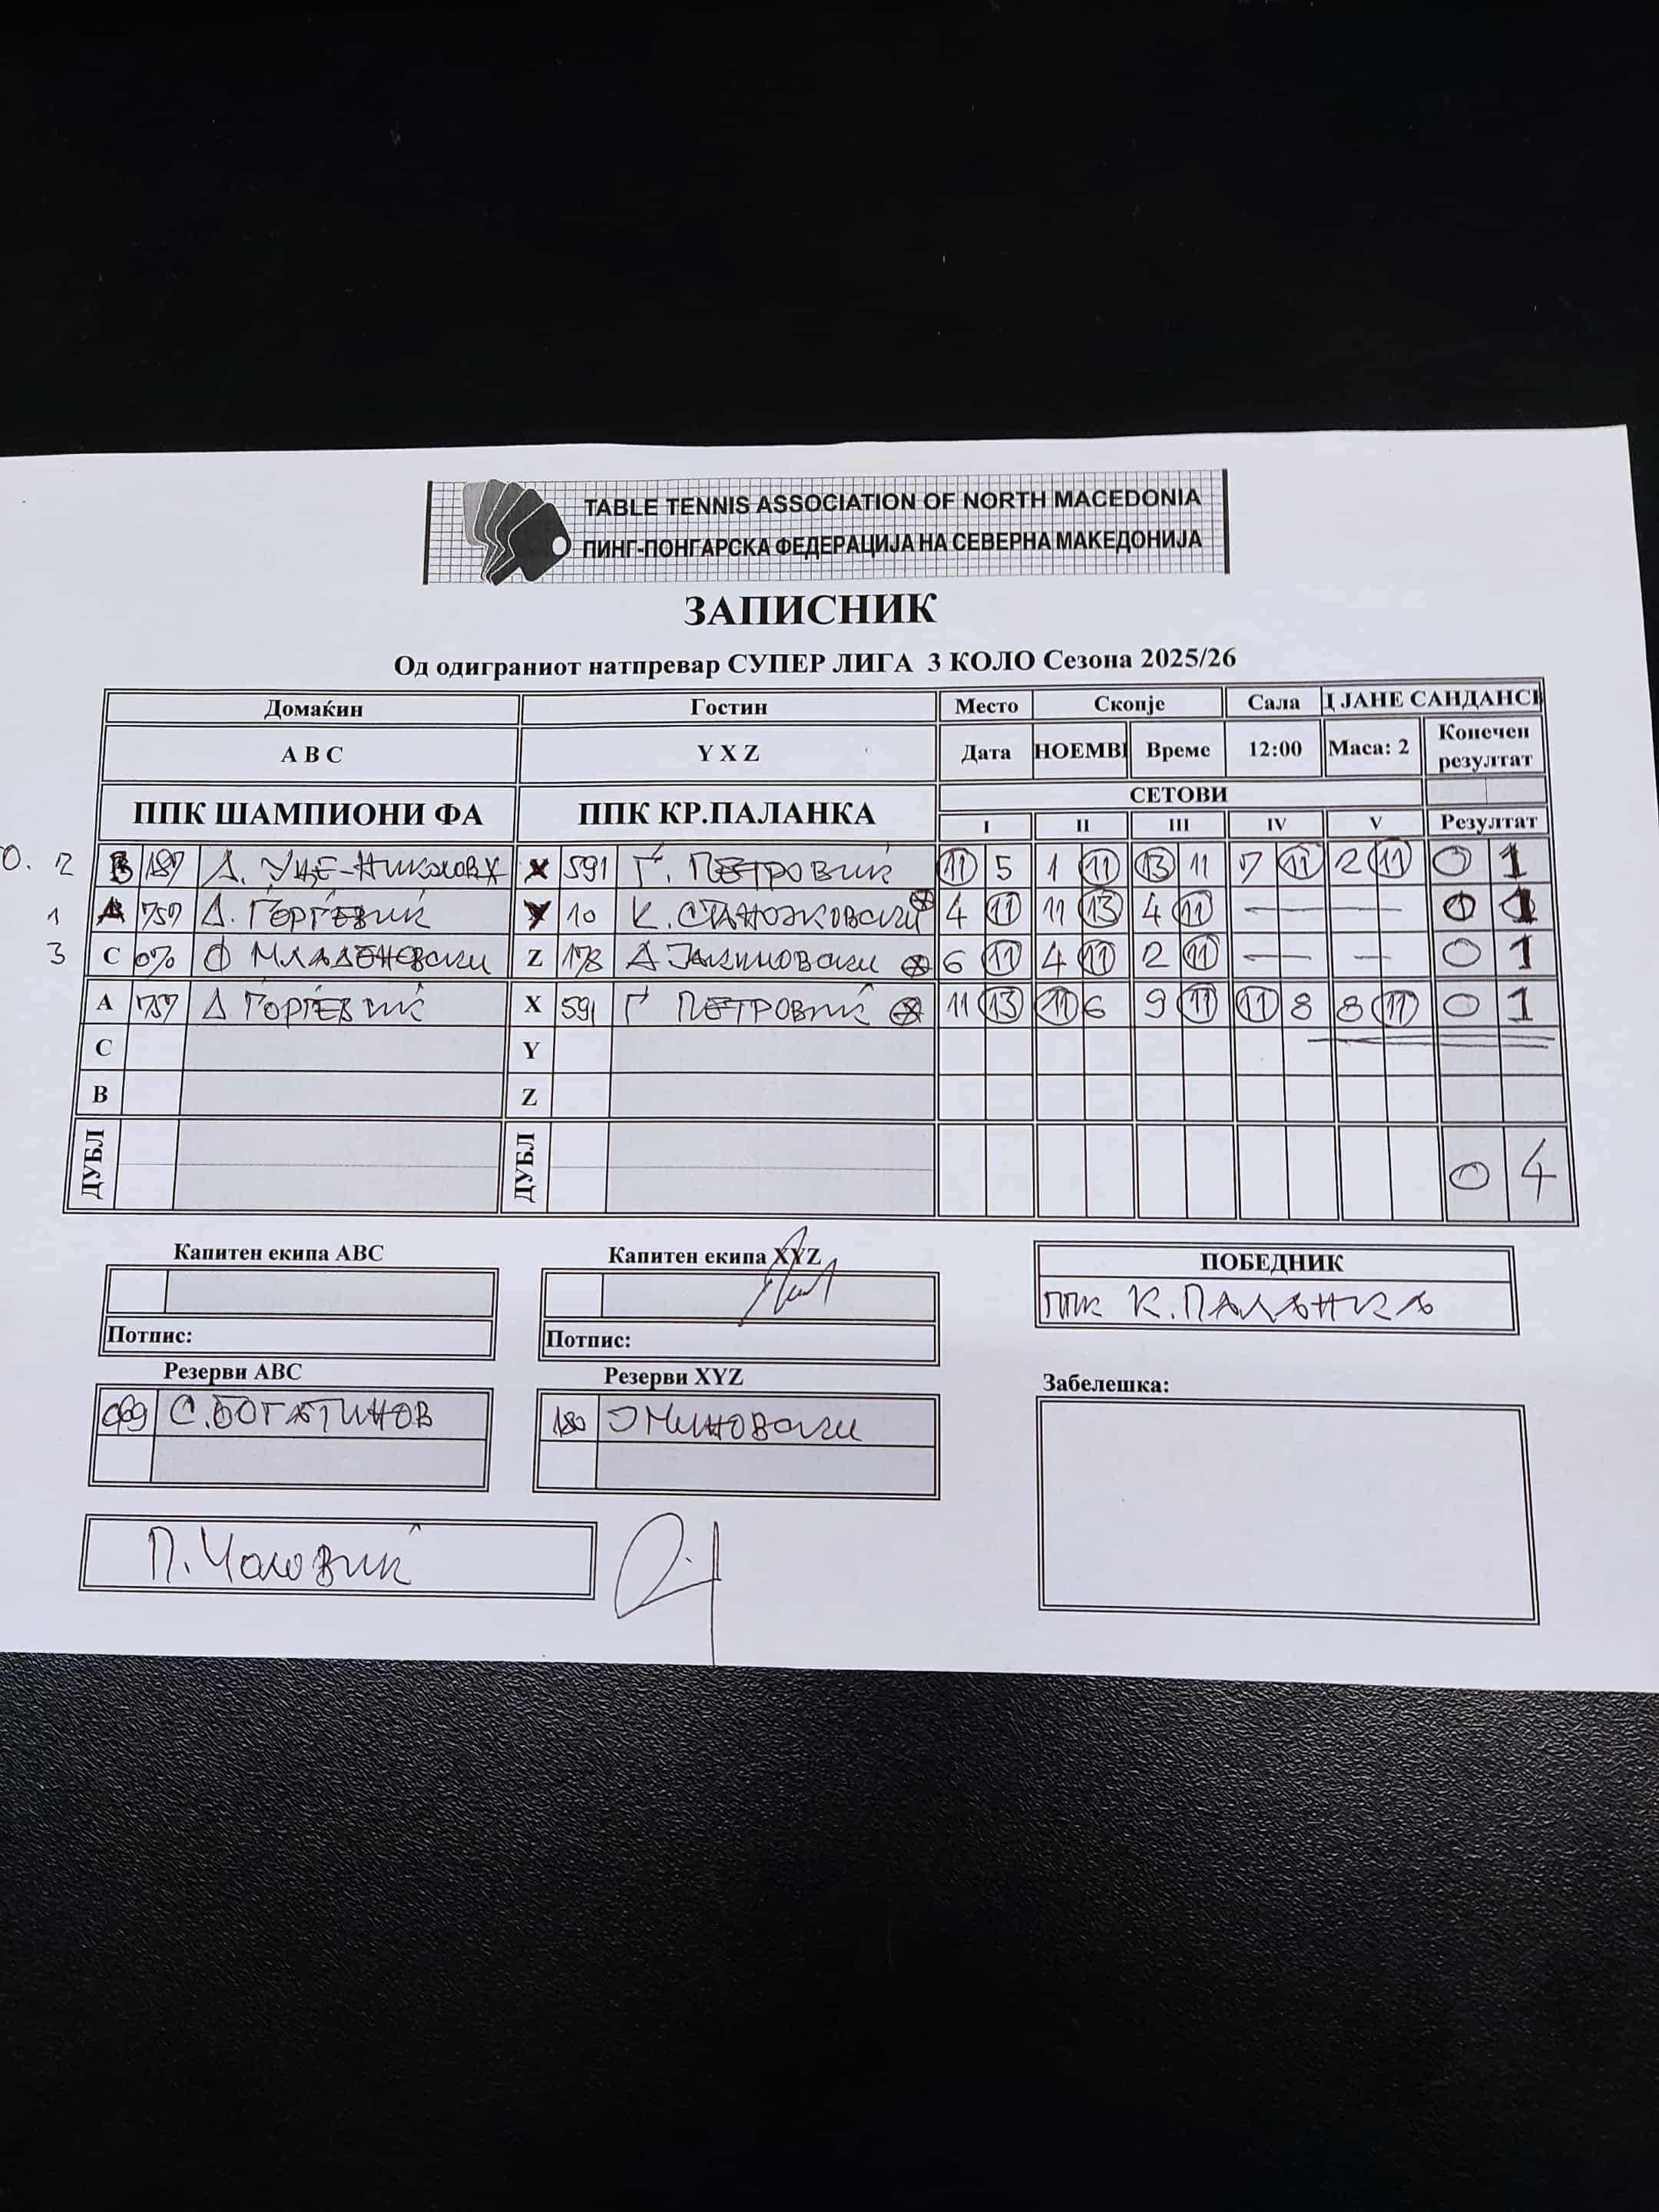 TABLE TENNIS ASSOCIATION OF NORTH MACEDONIA
ПИНГ-ПОНГАРСКА ФЕДЕРАЦИЈА НА СЕВЕРНА МАКЕДОНИЈА
ЗАПИСНИК
Од одиграниот натпревар СУПЕР ЛИГА 3 КОЛО Сезона 2025/26
Домаќин Гостин Место Скопје Сала Ј ЈАНЕ САНДАНСК
A B C Y X Z Дата НОЕМВ Време 12:00 Маса: 2 Конечен резултат
ППК ШАМПИОНИ ФА ППК КР.ПАЛАНКА СЕТОВИ
I II III IV V Резултат
2 B 187 X 591 Ѓ. ПЕТРОВИЌ 11 5 1 11 13 11 7 11 2 11 0 1
1 A 757 Д. ЃОРЃЕВИЌ Y 10 К. СТАНОЈКОВСКИ 4 11 11 13 4 11 0 1
3 C Ф МЛАДЕНОВСКИ Z 178 Д ЈАКИМОВСКИ 6 11 4 11 2 11 0 1
A 757 Д ЃОРЃЕВИЌ X 591 Ѓ ПЕТРОВИЌ 11 13 11 6 9 11 11 8 8 11 0 1
C Y
B Z
ДУБЛ ДУБЛ 0 4
Капитен екипа ABC Капитен екипа XYZ ПОБЕДНИК
ППК К.ПАЛАНКА
Потпис: Потпис:
Резерви ABC Резерви XYZ Забелешка:
С.БОГАТИНОВ 180 МИНОВСКИ
П. Чоловиќ